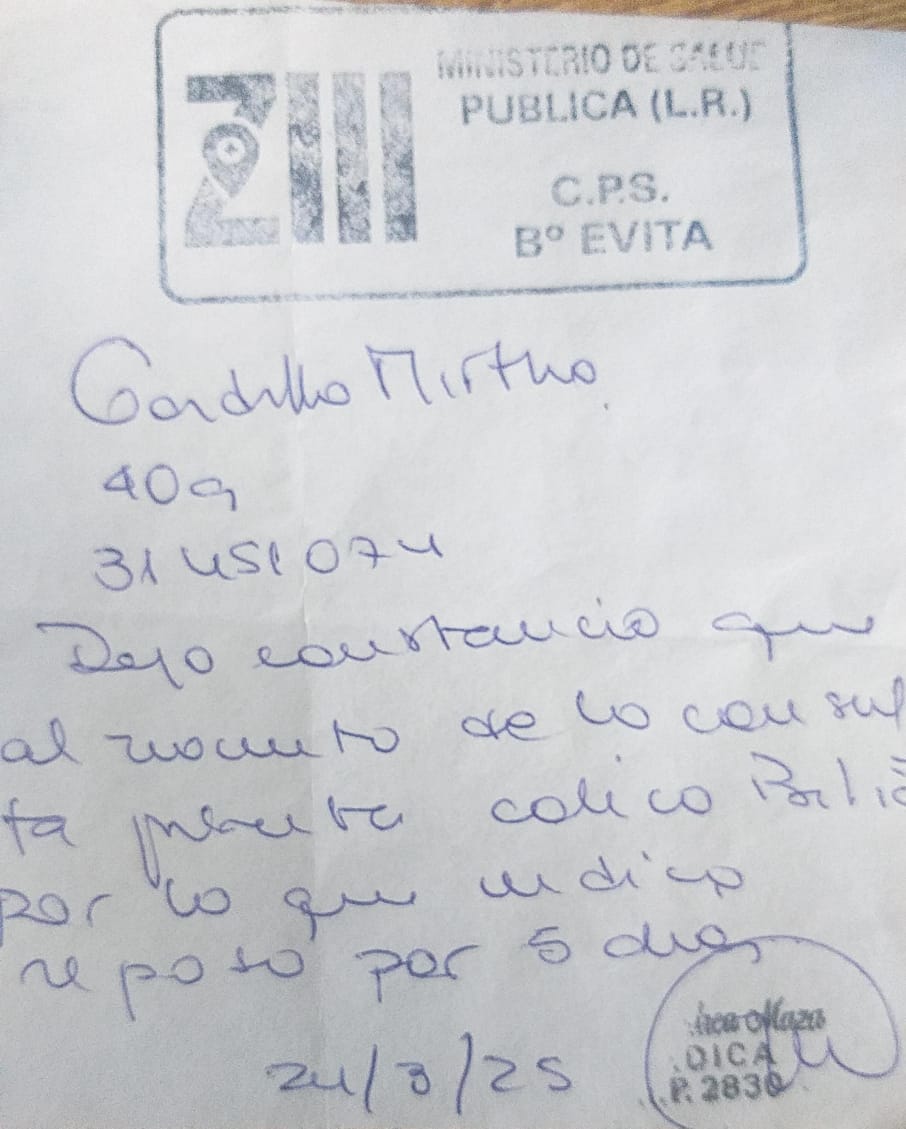 MINISTERIO DE SALUD
PUBLICA (L.R.)
ZIII
C.P.S.
Bº EVITA
Gordillo Mirtha.
40a
31451074
Dejo constancia que
al momento de la consul
ta presenta colico Bilia
por lo que indico
reposo por 5 dias
24/3/25
Maza
DICA
.P. 2830